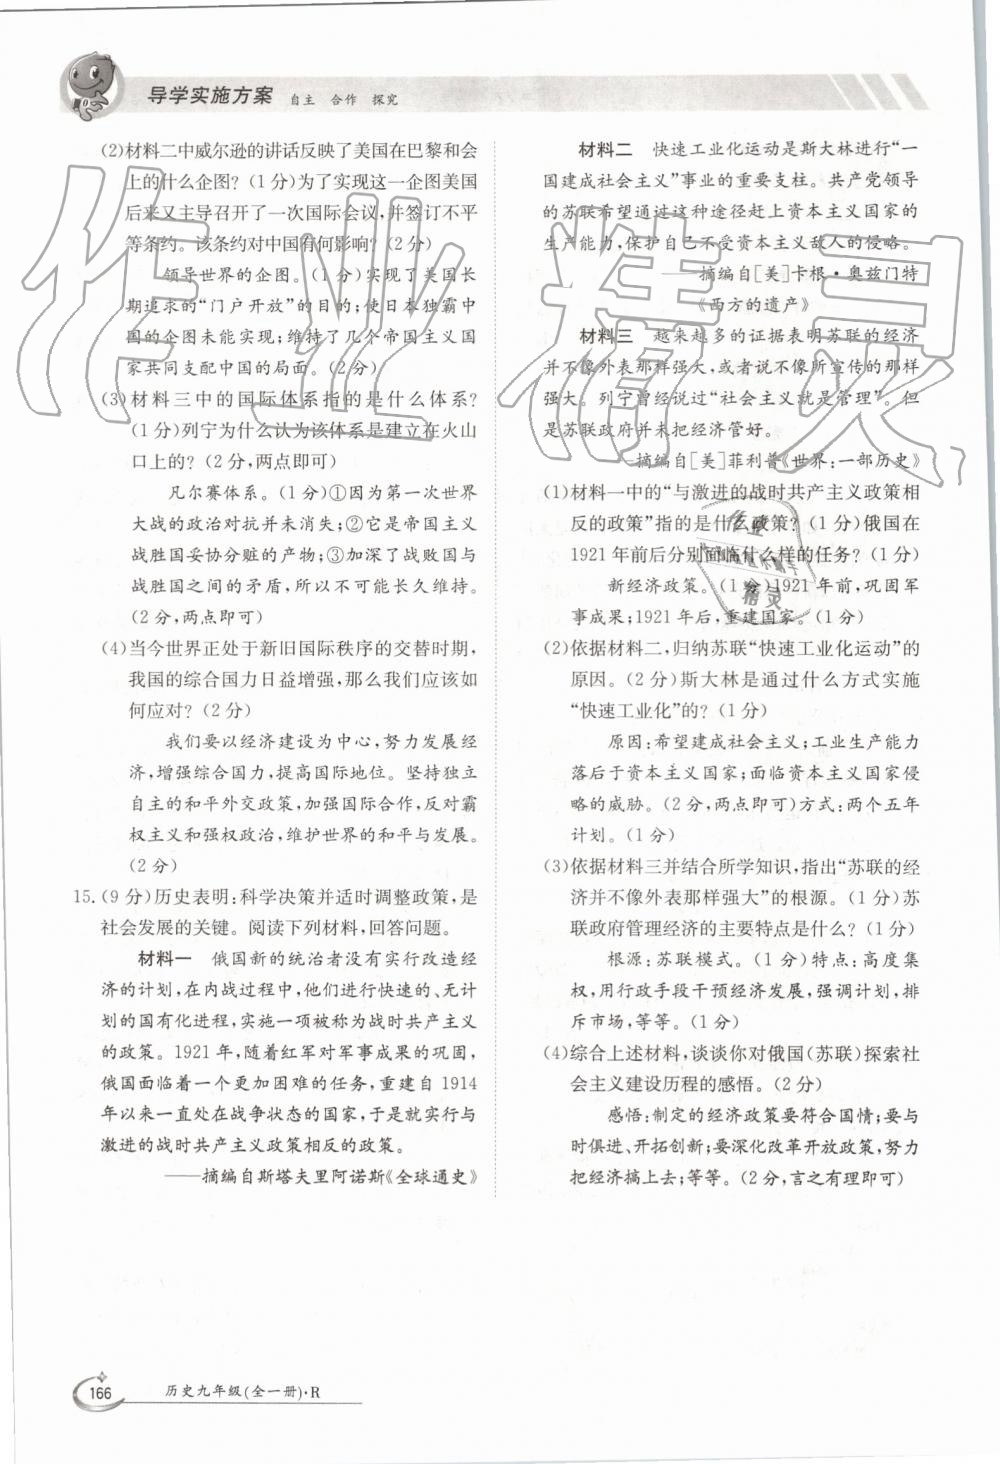 导学实施方案 自主 合作 探究
(2)材料二中威尔逊的讲话反映了美国在巴黎和会
上的什么企图?(1分)为了实现这一企图美国
后来又主导召开了一次国际会议,并签订不平
等条约。该条约对中国有何影响?(2分)
领导世界的企图。(1分)实现了美国长
期追求的“门户开放”的目的;使日本独霸中
国的企图未能实现;维持了几个帝国主义国
家共同支配中国的局面。(2分)
(3)材料三中的国际体系指的是什么体系?
(1分)列宁为什么认为该体系是建立在火山
口上的?(2分,两点即可)
凡尔赛体系。(1分)①因为第一次世界
大战的政治对抗并未消失;②它是帝国主义
战胜国妥协分赃的产物;③加深了战败国与
战胜国之间的矛盾,所以不可能长久维持。
(2分,两点即可)
(4)当今世界正处于新旧国际秩序的交替时期,
我国的综合国力日益增强,那么我们应该如
何应对?(2分)
我们要以经济建设为中心,努力发展经
济,增强综合国力,提高国际地位。坚持独立
自主的和平外交政策,加强国际合作,反对霸
权主义和强权政治,维护世界的和平与发展。
(2分)
15.(9分)历史表明:科学决策并适时调整政策,是
社会发展的关键。阅读下列材料,回答问题。
材料一 俄国新的统治者没有实行改造经
济的计划,在内战过程中,他们进行快速的、无计
划的国有化进程,实施一项被称为战时共产主义
的政策。1921年,随着红军对军事成果的巩固,
俄国面临着一个更加困难的任务,重建自1914
年以来一直处在战争状态的国家,于是就实行与
激进的战时共产主义政策相反的政策。
——摘编自斯塔夫里阿诺斯《全球通史》
材料二 快速工业化运动是斯大林进行“一
国建成社会主义”事业的重要支柱。共产党领导
的苏联希望通过这种途径赶上资本主义国家的
生产能力,保护自己不受资本主义敌人的侵略。
——摘编自[美]卡根·奥兹门特
《西方的遗产》
材料三 越来越多的证据表明苏联的经济
并不像外表那样强大,或者说不像所宣传的那样
强大。列宁曾经说过“社会主义就是管理”。但
是苏联政府并未把经济管好。
——摘编自[美]菲利普《世界:一部历史》
(1)材料一中的“与激进的战时共产主义政策相
反的政策”指的是什么政策?(1分)俄国在
1921年前后分别面临什么样的任务?(1分)
新经济政策。(1分)1921年前,巩固军
事成果;1921年后,重建国家。(1分)
(2)依据材料二,归纳苏联“快速工业化运动”的
原因。(2分)斯大林是通过什么方式实施
“快速工业化”的?(1分)
原因:希望建成社会主义;工业生产能力
落后于资本主义国家;面临资本主义国家侵
略的威胁。(2分,两点即可)方式:两个五年
计划。(1分)
(3)依据材料三并结合所学知识,指出“苏联的经
济并不像外表那样强大”的根源。(1分)苏
联政府管理经济的主要特点是什么?(1分)
根源:苏联模式。(1分)特点:高度集
权,用行政手段干预经济发展,强调计划,排
斥市场,等等。(1分)
(4)综合上述材料,谈谈你对俄国(苏联)探索社
会主义建设历程的感悟。(2分)
感悟:制定的经济政策要符合国情;要与
时俱进、开拓创新;要深化改革开放政策,努力
把经济搞上去;等等。(2分,言之有理即可)
作业精灵
作业
精灵
166 历史九年级(全一册)·R